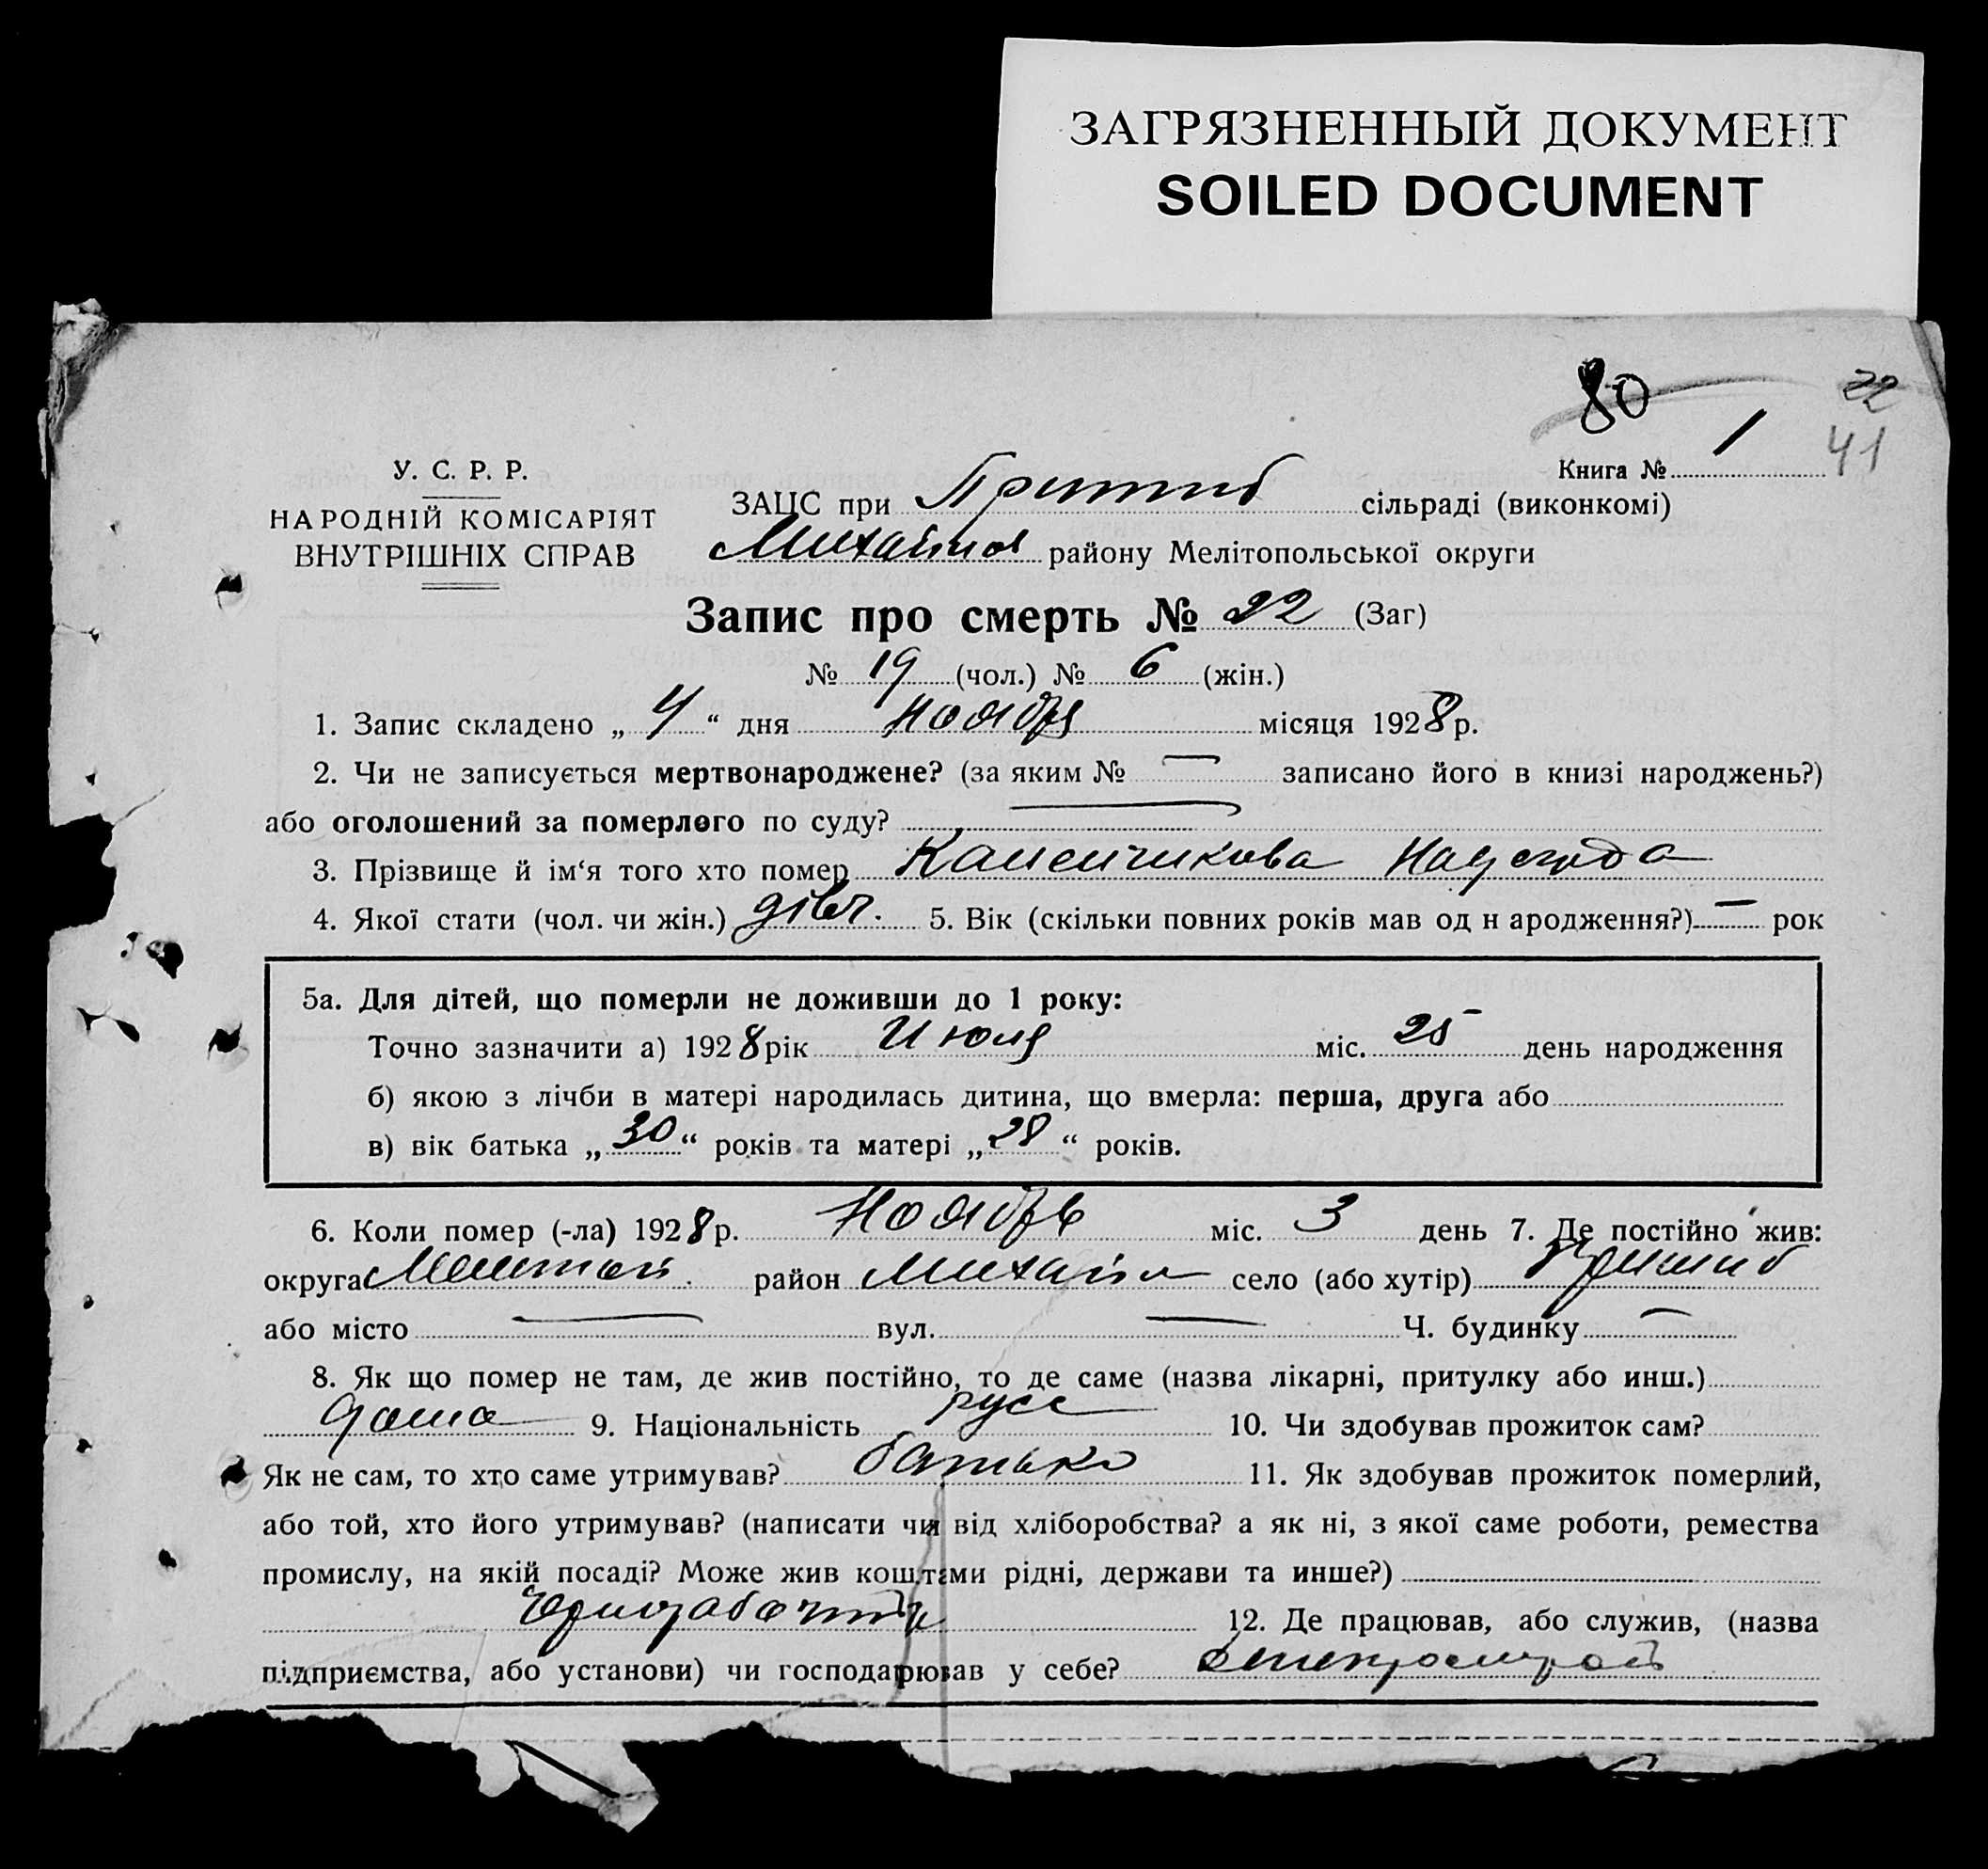 ЗАГРЯЗНЕННЫЙ ДОКУМЕНТ
SOILED DOCUMENT
80
22
41
Книга № 1
У. С. Р. Р.
НАРОДНІЙ КОМІСАРІЯТ
ВНУТРІШНІХ СПРАВ
ЗАЦС при Пришиб сільраді (виконкомі)
Михайлов району Мелітопольської округи
Запис про смерть № 22 (Заг)
№ 19 (чол.) № 6 (жін.)
1. Запис складено „ 4 “ дня Ноября місяця 1928 р.
2. Чи не записується мертвонароджене? (за яким № — записано його в книзі народжень?)
або оголошений за померлого по суду? —
3. Прізвище й ім‘я того хто помер Каменчикова Надежда
4. Якої стати (чол. чи жін.) дівч. 5. Вік (скільки повних років мав од н ародження?) — рок
5а. Для дітей, що померли не доживши до 1 року:
Точно зазначити а) 1928 рік Июля міс. 25 день народження
б) якою з лічби в матері народилась дитина, що вмерла: перша, друга або
в) вік батька „ 30 “ років та матері „ 28 “ років.
6. Коли помер (-ла) 1928 р. Ноябрь міс. 3 день 7. Де постійно жив:
округа район Михайл село (або хутір) Пришиб
або місто — вул. — Ч. будинку —
8. Як що помер не там, де жив постійно, то де саме (назва лікарні, притулку або инш.)
дома 9. Національність русс 10. Чи здобував прожиток сам?
Як не сам, то хто саме утримував? батько 11. Як здобував прожиток померлий,
або той, хто його утримував? (написати чи від хліборобства? а як ні, з якої саме роботи, ремества
промислу, на якій посаді? Може жив коштами рідні, держави та инше?)
12. Де працював, або служив, (назва
підприємства, або установи) чи господарював у себе?